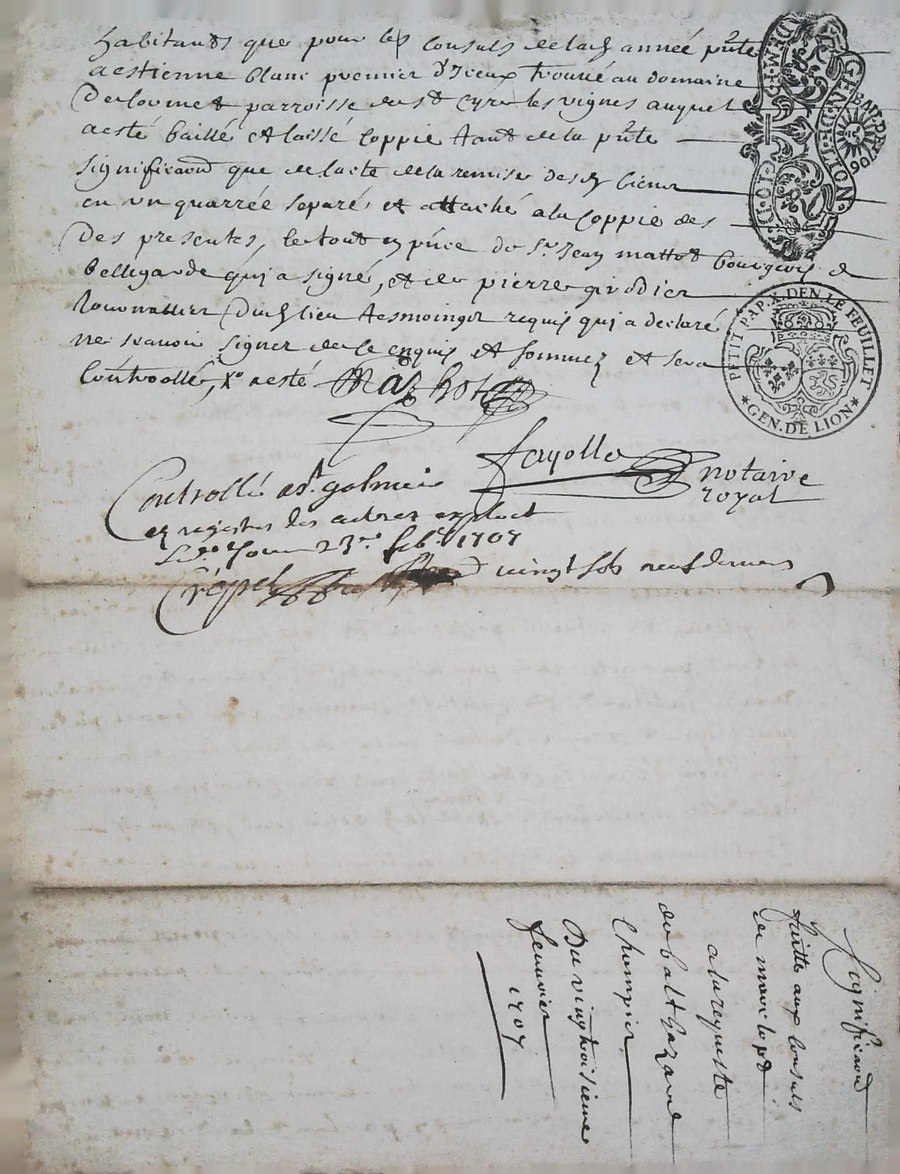 habitants que pour les consuls de lad année pnte
a estienne blanc premier d'Iceux trouvé au domaine
De Lournet parroisse de st Cyr les vignes auquel
a esté baillé et laissé Coppie tant de la pnte
signification que de l'acte de la remise desd biens
en un quarrée separé et attaché a la Coppie des
Des presentes, le tout en pnce de Sr Jean mathot bourgeois de
bellegarde qui a signé, et de pierre girodier
Dud lieu tesmoingz requis qui a declaré
ne scavoir signer de ce enquis et sommez et sera
Controollé, Xo resté Mathot
fayolle notaire
royal
Controllé a st galmier
es registre des autres exploit
Le 23me feb. 1707
Crespet vingt sols neuf deniers
GEN. DE LION.
BAIL DE 1706
PETIT PAP. X. DEN. LE FEUILLET
★ GEN. DE LION ★
Signification
faitte aux Consuls
a la requeste
de balthazard
Chompier
Du vingt troisieme
feuvrier
1707